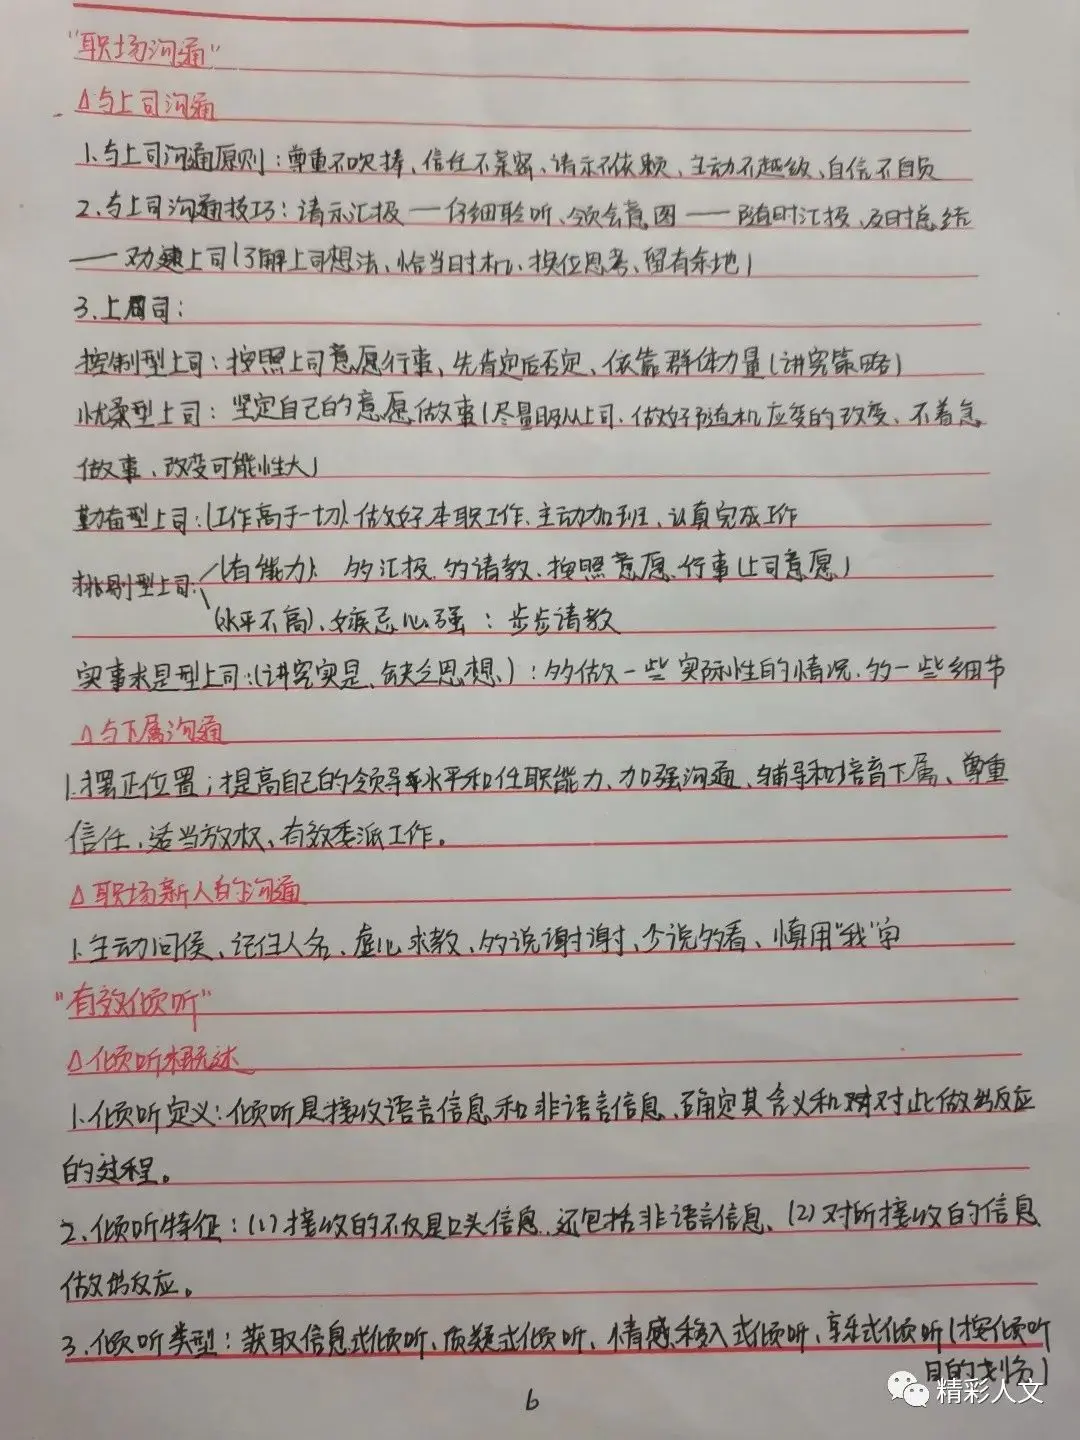 "职场沟通"
Δ与上司沟通
1、与上司沟通原则：尊重不吹捧、信任不亲密、请示不依赖、主动不越级、自信不自负
2、与上司沟通技巧：请示汇报——仔细聆听、领会意图——随时汇报、及时总结
——劝建上司(了解上司想法、恰当时机、换位思考、留有余地)
3、上司：
控制型上司：按照上司意愿行事，先肯定后否定、依靠群体力量(讲究策略)
优柔型上司：坚定自己的意愿做事(尽量服从上司、做好随机应变的改变、不着急
做事、改变可能性大)
勤奋型上司：(工作高于一切)、做好本职工作、主动加班、认真完成工作
挑剔型上司：(有能力)、多汇报、多请教、按照意愿行事(上司意愿)
(水平不高)、嫉忌心强：步步请教
实事求是型上司：(讲究实是、缺乏思想)：多做一些实际性的情况、多一些细节
Δ与下属沟通
1、摆正位置；提高自己的领导水平和任职能力、加强沟通、辅导和培育下属、尊重
信任、适当放权、有效委派工作。
Δ职场新人的沟通
1、主动问侯、记住人名、虚心求教、多说谢谢、少说多看、慎用"我"字
"有效倾听"
Δ倾听概述
1、倾听定义：倾听是接收语言信息和非语言信息、确定其含义和对此做出反应
的过程。
2、倾听特征：(1)接收的不仅是口头信息，还包括非语言信息、(2)对所接收的信息
做出反应。
3、倾听类型：获取信息式倾听、质疑式倾听、情感移入式倾听、享乐式倾听(按倾听
目的划分)
6
精彩人文